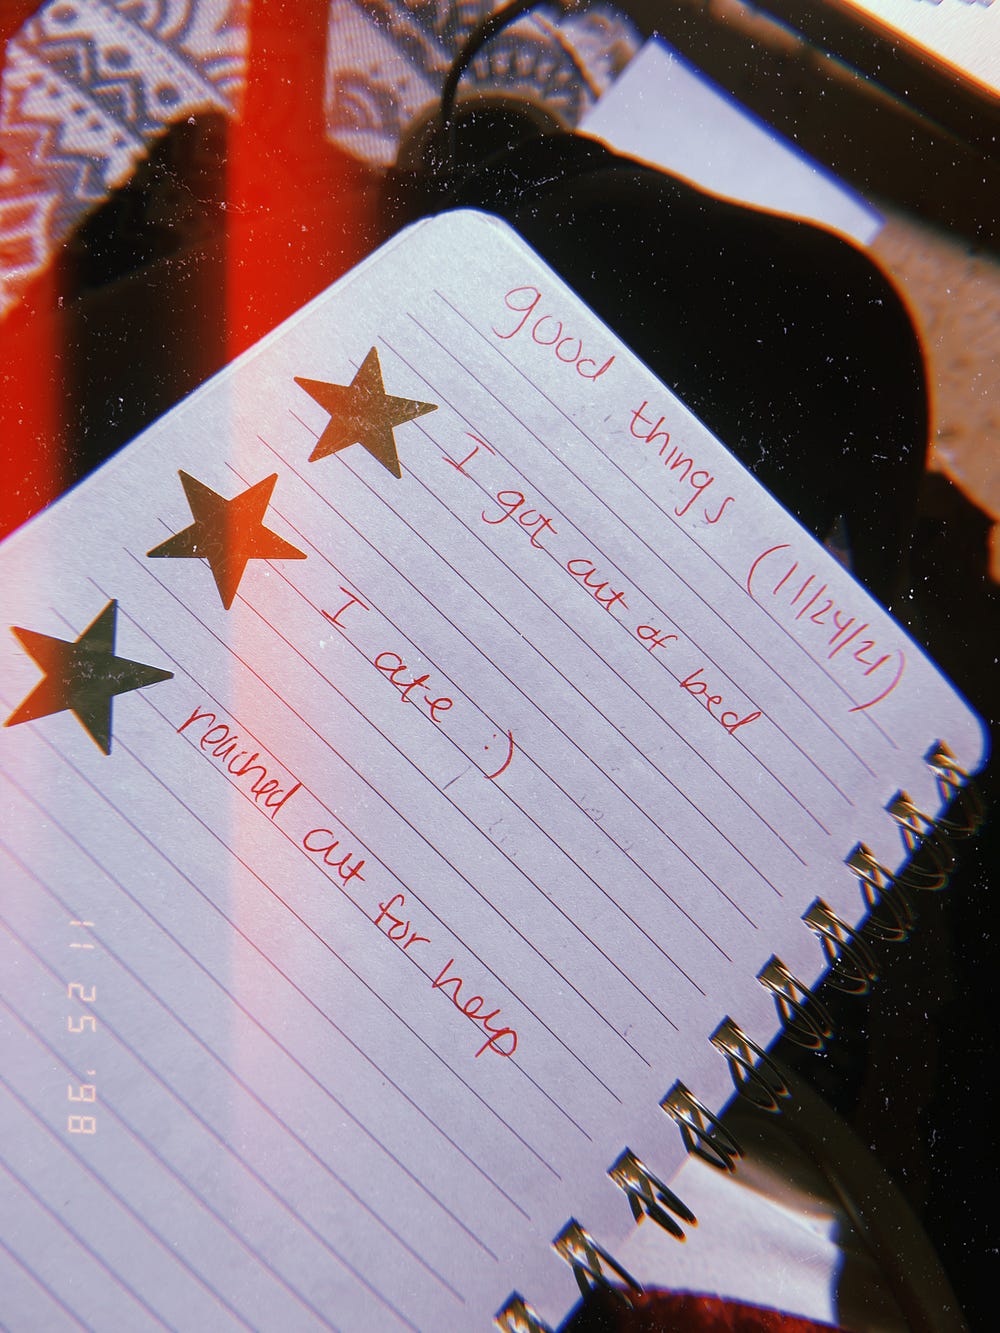 good things (11/24/21)
I got out of bed
I ate :)
reached out for help
11 25 '98